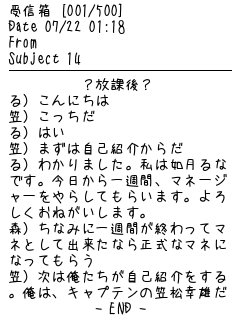 受信箱 [001/500]
Date 07/22 01:18
From
Subject 14
?放課後?
る) こんにちは
笠) こっちだ
る) はい
笠) まずは自己紹介からだ
る) わかりました。私は如月るな
です。今日から一週間、マネージ
ャーをやらしてもらいます。よろ
しくおねがいします。
森) ちなみに一週間が終わってマ
ネとして出来たなら正式なマネに
なってもらう
笠) 次は俺たちが自己紹介をする
。俺は、キャプテンの笠松幸雄だ
- END -